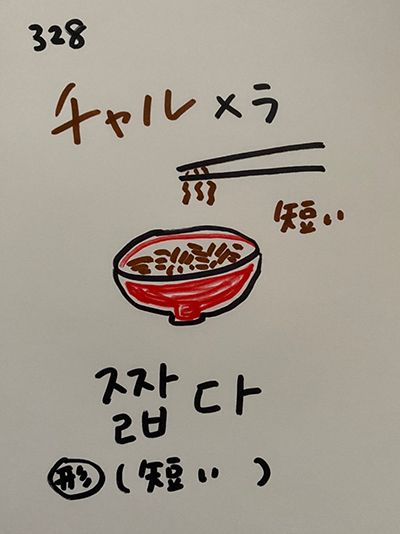 328
チャルメラ
短い
짧다
形(短い)